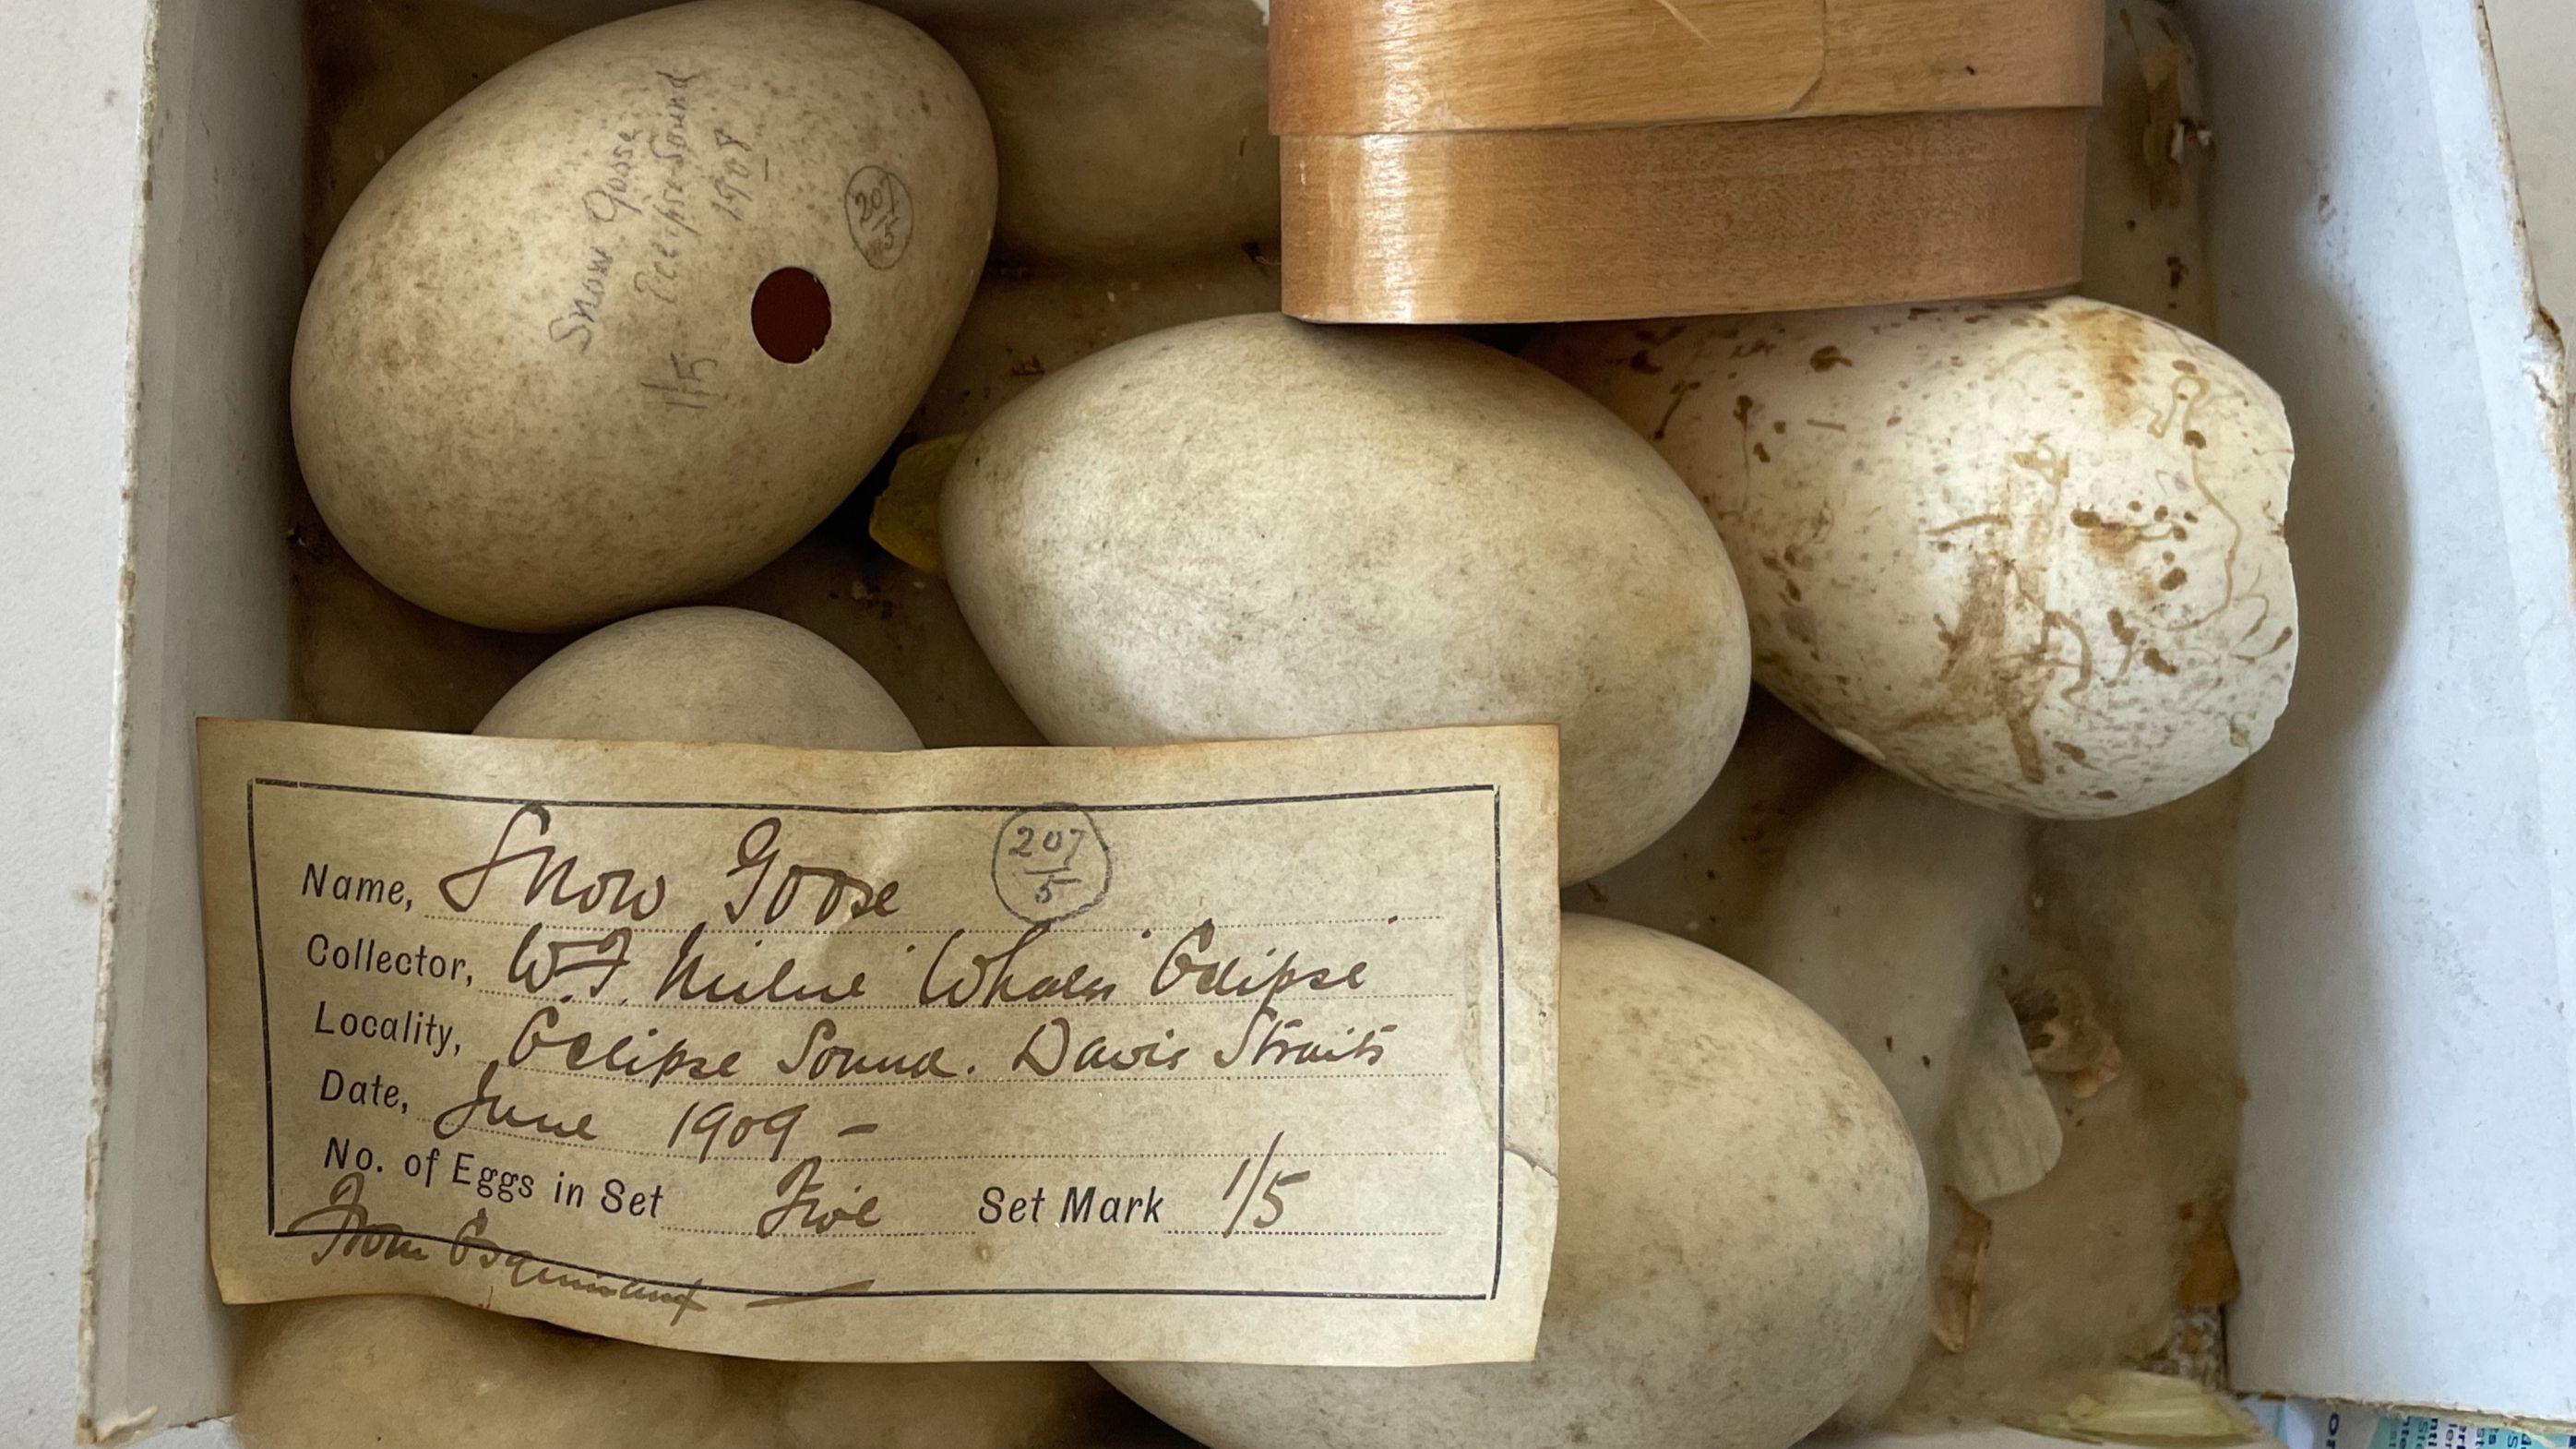 Snow Goose
Eclipse Sound
1908
1/5
207/5
207/5
Name, Snow Goose
Collector, W.F. Milne "Whaler" Eclipse
Locality, Eclipse Sound. Davis Straits
Date, June 1909 -
No. of Eggs in Set Five Set Mark 1/5
From Esquimaux